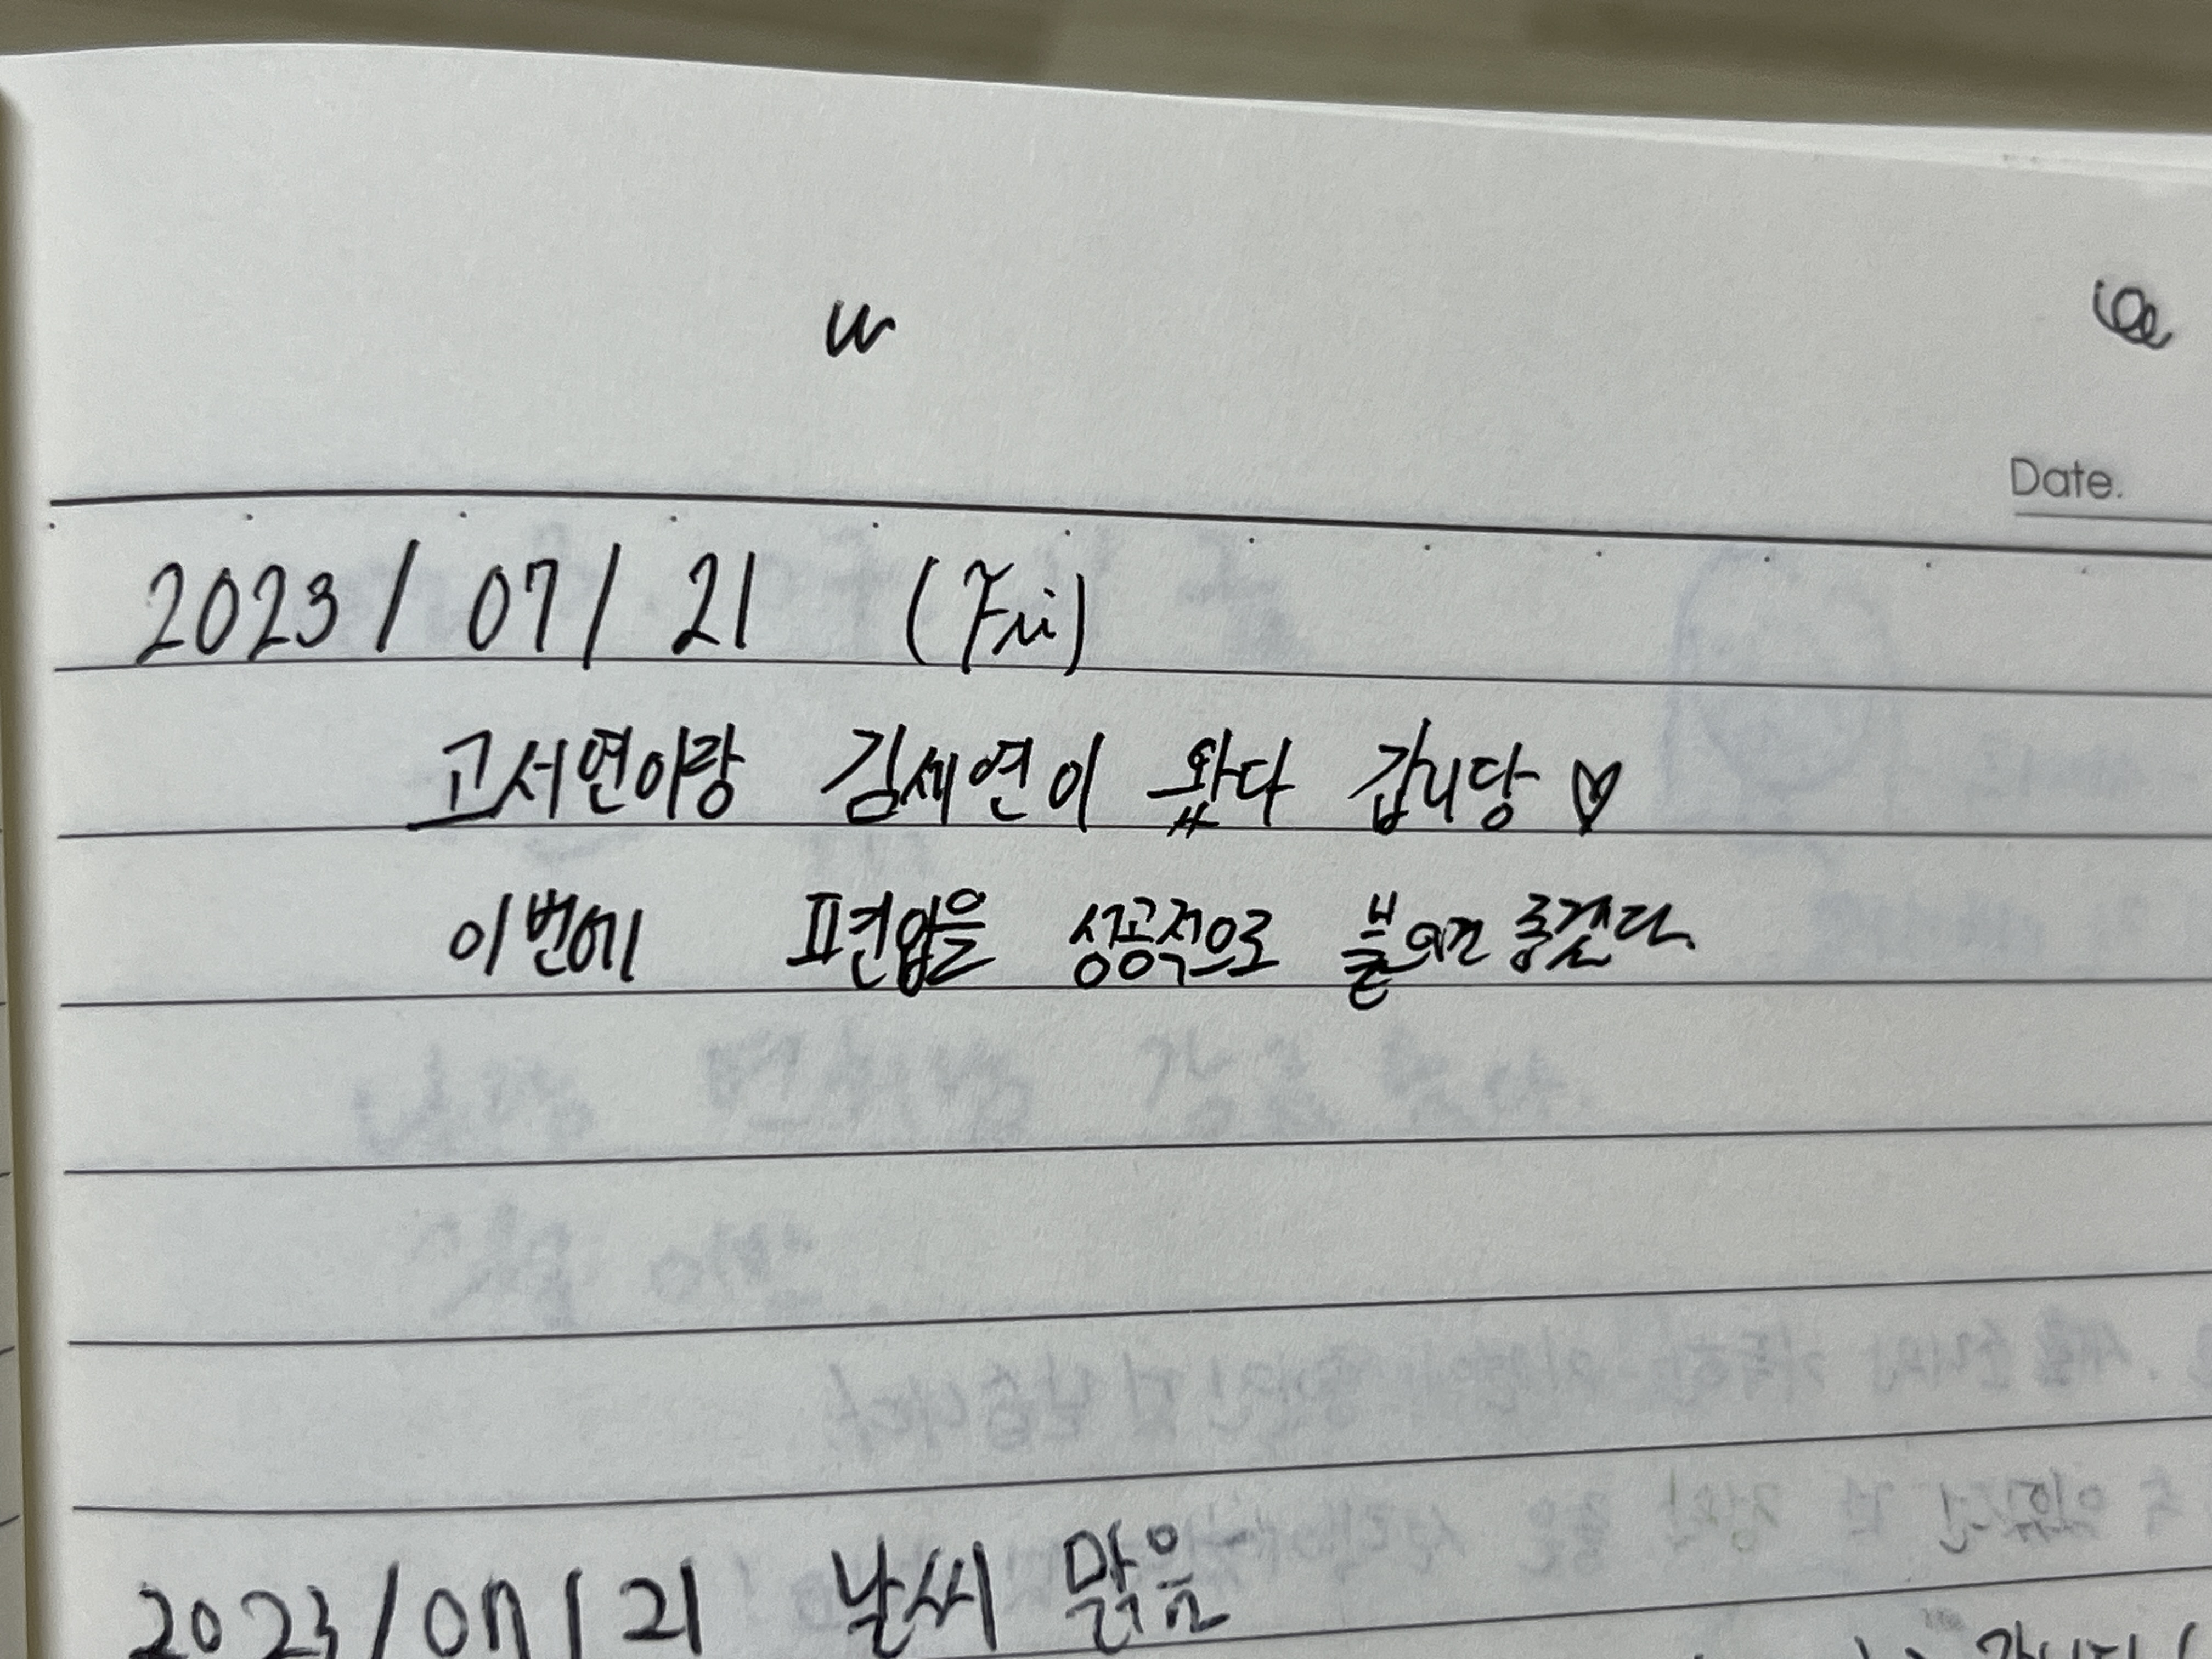 Date.
2023/07/21 (Fri)
고서연이랑 김세연이 왔다 갑니당♡
이번에 편입을 성공적으로 붙으면 좋겠다.
2023/07/21 날씨 맑음
갑니다